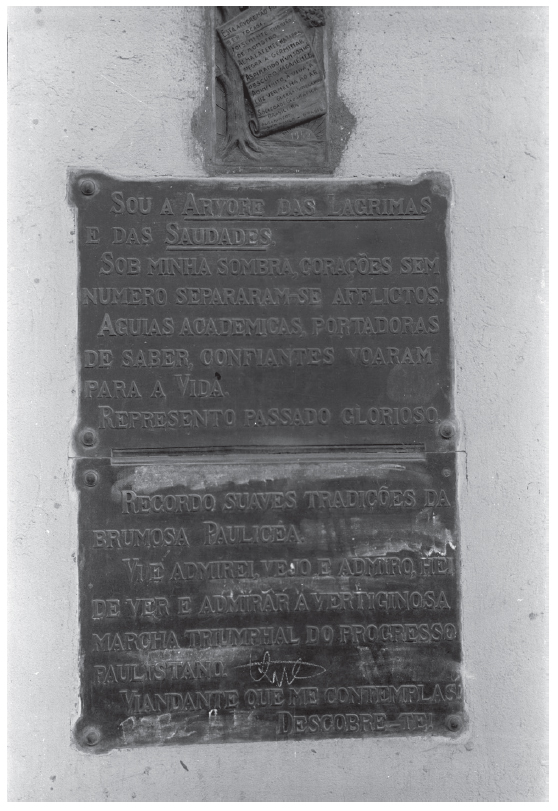 SOU A ARVORE DAS LAGRIMAS
E DAS SAUDADES
SOB MINHA SOMBRA, CORAÇÕES SEM
NUMERO SEPARARAM-SE AFFLICTOS.
AGUIAS ACADEMICAS, PORTADORAS
DE SABER, CONFIANTES VOARAM
PARA A VIDA.
REPRESENTO PASSADO GLORIOSO.
RECORDO SUAVES TRADICÕES DA
BRUMOSA PAULICÉA.
VI E ADMIREI, VEJO E ADMIRO, HEI
DE VER E ADMIRAR A VERTIGINOSA
MARCHA TRIUMPHAL DO PROGRESSO
PAULISTANO.
VIANDANTE QUE ME CONTEMPLAS!
DESCOBRE-TE!